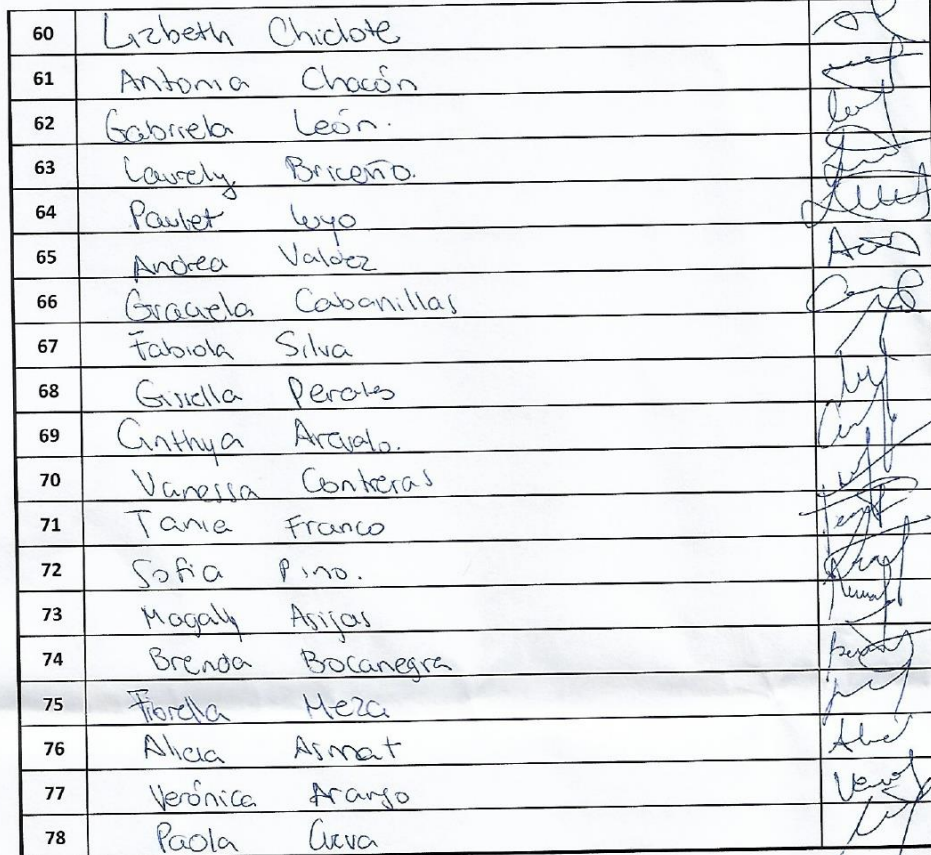 60 Lizbeth Chiclote
61 Antonia Chacón
62 Gabriela León.
63 Laurely Briceño.
64 Paulet Luyo
65 Andrea Valdez
66 Graciela Cabanillas
67 Fabiola Silva
68 Gisella Perales
69 Cinthya Arevalo.
70 Vanessa Contreras
71 Tania Franco
72 Sofia Pino.
73 Magaly
74 Brenda Bocanegra
75 Fiorella Meza
76 Alicia Asmat
77 Verónica Araujo
78 Paola Cueva